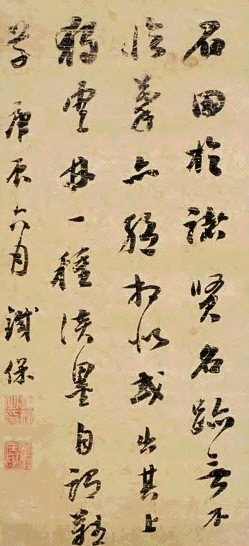 石田於諸賢名跡無不
臨摹亦絕相似或出其上
獨雲林一種淡墨自謂難
學 庚辰六月 鐵保